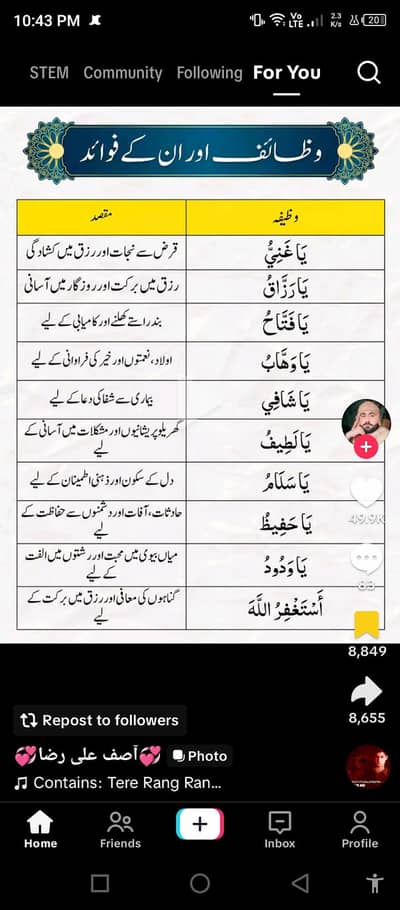 10:43 PM
Vo
LTE
2.3
K/s
20
STEM Community Following For You
وظائف اور ان کے فوائد
وظیفہ مقصد
یَا غَنِيُّ قرض سے نجات اور رزق میں کشادگی
یَا رَزَّاقُ رزق میں برکت اور روزگار میں آسانی
یَا فَتَّاحُ بند راستے کھلنے اور کامیابی کے لیے
یَا وَهَّابُ اولاد، نعمتوں اور خیر کی فراوانی کے لیے
یَا شَافِي بیماری سے شفا کی دعا کے لیے
یَا لَطِيفُ گھریلو پریشانیوں اور مشکلات میں آسانی کے
لیے
یَا سَلَامُ دل کے سکون اور ذہنی اطمینان کے لیے
یَا حَفِيظُ حادثات، آفات اور دشمنوں سے حفاظت کے
لیے
یَا وَدُودُ میاں بیوی میں محبت اور رشتوں میں الفت
کے لیے
أَسْتَغْفِرُ اللَّهَ گناہوں کی معافی اور رزق میں برکت کے
لیے
49.9K
83
8,849
8,655
Repost to followers
آصف علی رضا Photo
Contains: Tere Rang Ran...
Home Friends Inbox Profile